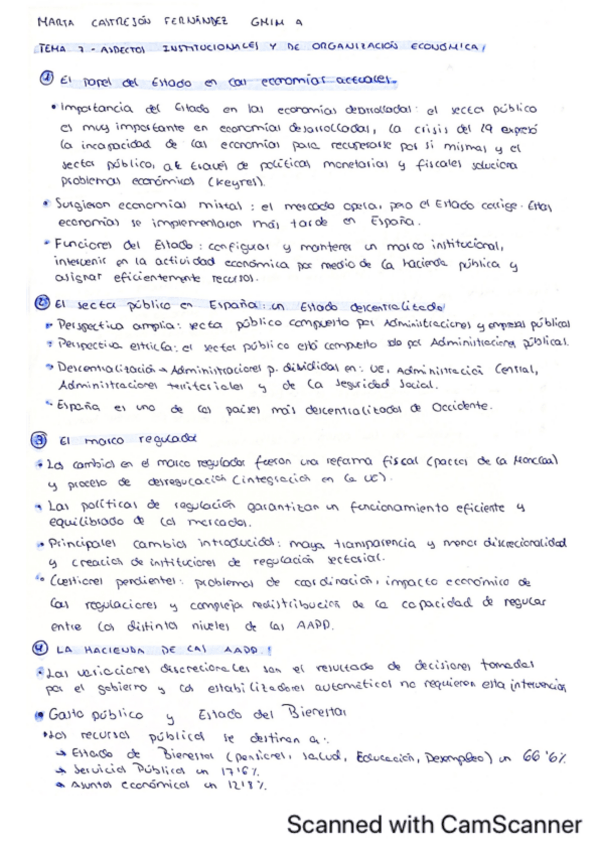 MARTA CASTREJÓN FERNÁNDEZ GMIM A
TEMA 7 - ASPECTOS INSTITUCIONALES Y DE ORGANIZACIÓN ECONÓMICA
① El papel del Estado en las economías actuales.
• Importancia del Estado en las economías desarrolladas: el sector público
es muy importante en economías desarrolladas, la crisis del 29 expresó
la incapacidad de las economías para recuperarse por sí mismas y el
sector público, a través de políticas monetarias y fiscales soluciona
problemas económicos (Keynes).
• Surgieron economías mixtas: el mercado opera, pero el Estado corrige. Estas
economías se implementaron más tarde en España.
• Funciones del Estado: configurar y mantener un marco institucional,
intervenir en la actividad económica por medio de la hacienda pública y
asignar eficientemente recursos.
② El sector público en España: un Estado descentralizado
• Perspectiva amplia: sector público compuesto por Administraciones y empresas públicas
• Perspectiva estricta: el sector público está compuesto solo por Administraciones públicas.
• Descentralización → Administraciones p. divididas en: UE, Administración Central,
Administraciones territoriales y de la Seguridad Social.
• España es uno de los países más descentralizados de Occidente.
③ El marco regulador
• Los cambios en el marco regulador fueron una reforma fiscal (pactos de la Moncloa)
y proceso de desregulación (integración en la UE).
• Las políticas de regulación garantizan un funcionamiento eficiente y
equilibrado de los mercados.
• Principales cambios introducidos: mayor transparencia y menor discrecionalidad
y creación de instituciones de regulación sectorial.
• Cuestiones pendientes: problemas de coordinación, impacto económico de
las regulaciones y compleja redistribución de la capacidad de regular
entre los distintos niveles de las AAPP.
④ LA HACIENDA DE LAS AAPP.
• Las variaciones discrecionales son el resultado de decisiones tomadas
por el gobierno y los estabilizadores automáticos no requieren esta intervención
• Gasto público y Estado del Bienestar
• Los recursos públicos se destinan a:
→ Estado de Bienestar (pensiones, salud, Educación, Desempleo) un 66'6%
→ Servicios Públicos un 17'6%
→ Asuntos económicos un 12'8%.
Scanned with CamScanner